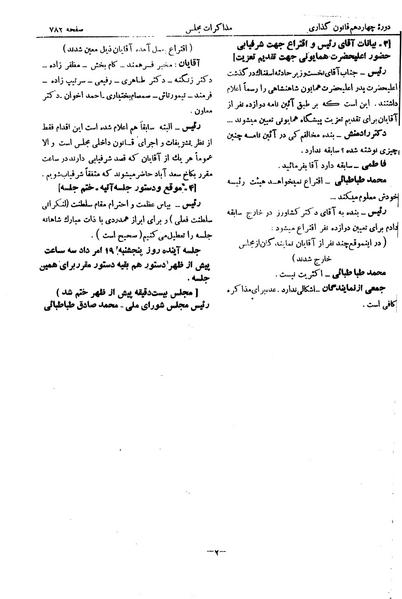 دورهٔ چهاردهم قانون گذاری
مذاکرات مجلس
صفحه ۷۸۲
[۳ـ بیانات آقای رئیس و اقتراع جهت شرفیابی
حضور اعلیحضرت همایونی جهت تقدیم تعزیت]
رئیس ـ جناب آقای نخست وزیر حادثه اسفناک در گذشت
اعلیحضرت پدر اعلیحضرت همایون شاهنشاهی را رسماً اعلام
داشتند . این است که بر طبق آئین نامه دوازده نفر از
آقایان برای تقدیم تعزیت پیشگاه همایونی تعیین میشوند ...
دکتر رادمنش ـ بنده مخالفم کی در آئین نامه چنین
چیزی نوشته شده ؟ سابقه ندارد .
فاطمی ـ سابقه دارد آقا بفرمائید .
محمد طباطبائی ـ اقتراع نمیخواهد هیئت رئیسه
خودش معلوم میکند ...
رئیس ـ بنده به آقای دکتر کشاورز در خارج سابقه
دادم برای تعیین دوازده نفر اقتراع میشود .
( در اینموقع چند نفر از آقایان نمایندگان از مجلس
خارج شدند )
محمد طباطبائی ـ اکثریت نیست .
جمعی از نمایندگان ـ اشکالی ندارد . عده برای مذاکره
کافی است .
( اقتراع بعمل آمده آقایان ذیل معین شدند )
آقایان : مخبر فرهمند ـ کام بخش ـ مظفر زاده ـ
دکتر زنگنه ـ دکتر طاهری ـ رفیعی ـ سرتیپ زاده ـ
فرمند ـ تیمورتاش ـ صمصام بختیاری ـ احمد اخوان ـ دکتر
معاون .
رئیس ـ البته سابقاً هم اعلام شده است این اقدام فقط
از نظر تشریفات و اجرای قانون داخلی مجلس است والا
عموماً هر یک از آقایان که قصد شرفیابی دارند در ساعت
مقرر بکاخ سعد آباد حاضر میشوند که متفقاً شرفیاب شویم .
[۴ـ موقع و دستور جلسه آتیه ـ ختم جلسه]
رئیس ـ بپاس عظمت و احترام مقام سلطنت (تلگرافی
سلطنت فعلی ) و برای ابراز همدردی با ذات مبارک شاهانه
جلسه را تعطیل می‌کنیم ( صحیح است ) .
جلسه آینده روز پنجشنبه ۱۹ امرداد سه ساعت
پیش از ظهر دستور هم بقیه دستور مقرر برای همین
جلسه .
( مجلس بیست دقیقه پیش از ظهر ختم شد )
رئیس مجلس شورای ملی ـ محمد صادق طباطبائی
ـ۲ـ